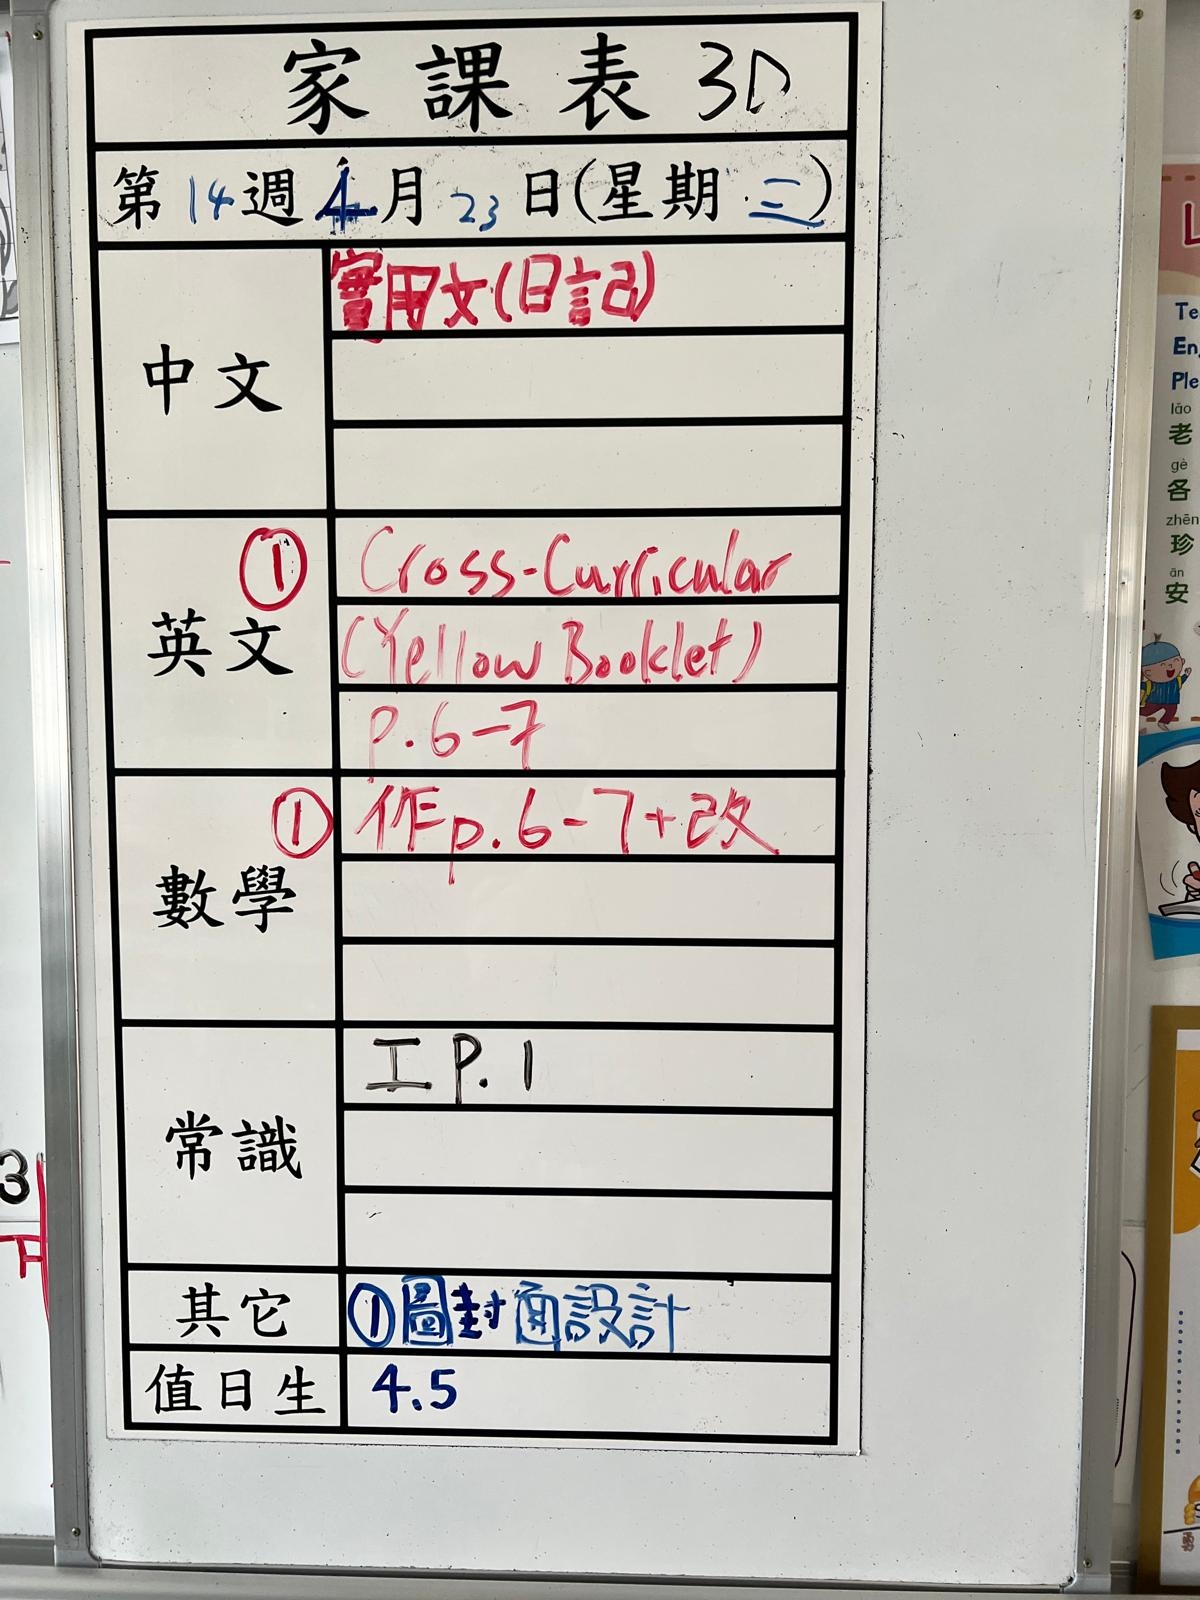 家課表 3D
第14週4月23日(星期三)
中文
實用文(日記)
英文
① Cross-Curricular
(Yellow Booklet)
p.6-7
數學
① 作p.6-7+改
常識
工 P.1
其它
①圖封面設計
值日生
4.5
Te
En
Ple
lǎo
老
gè
各
zhēn
珍
ān
安
3